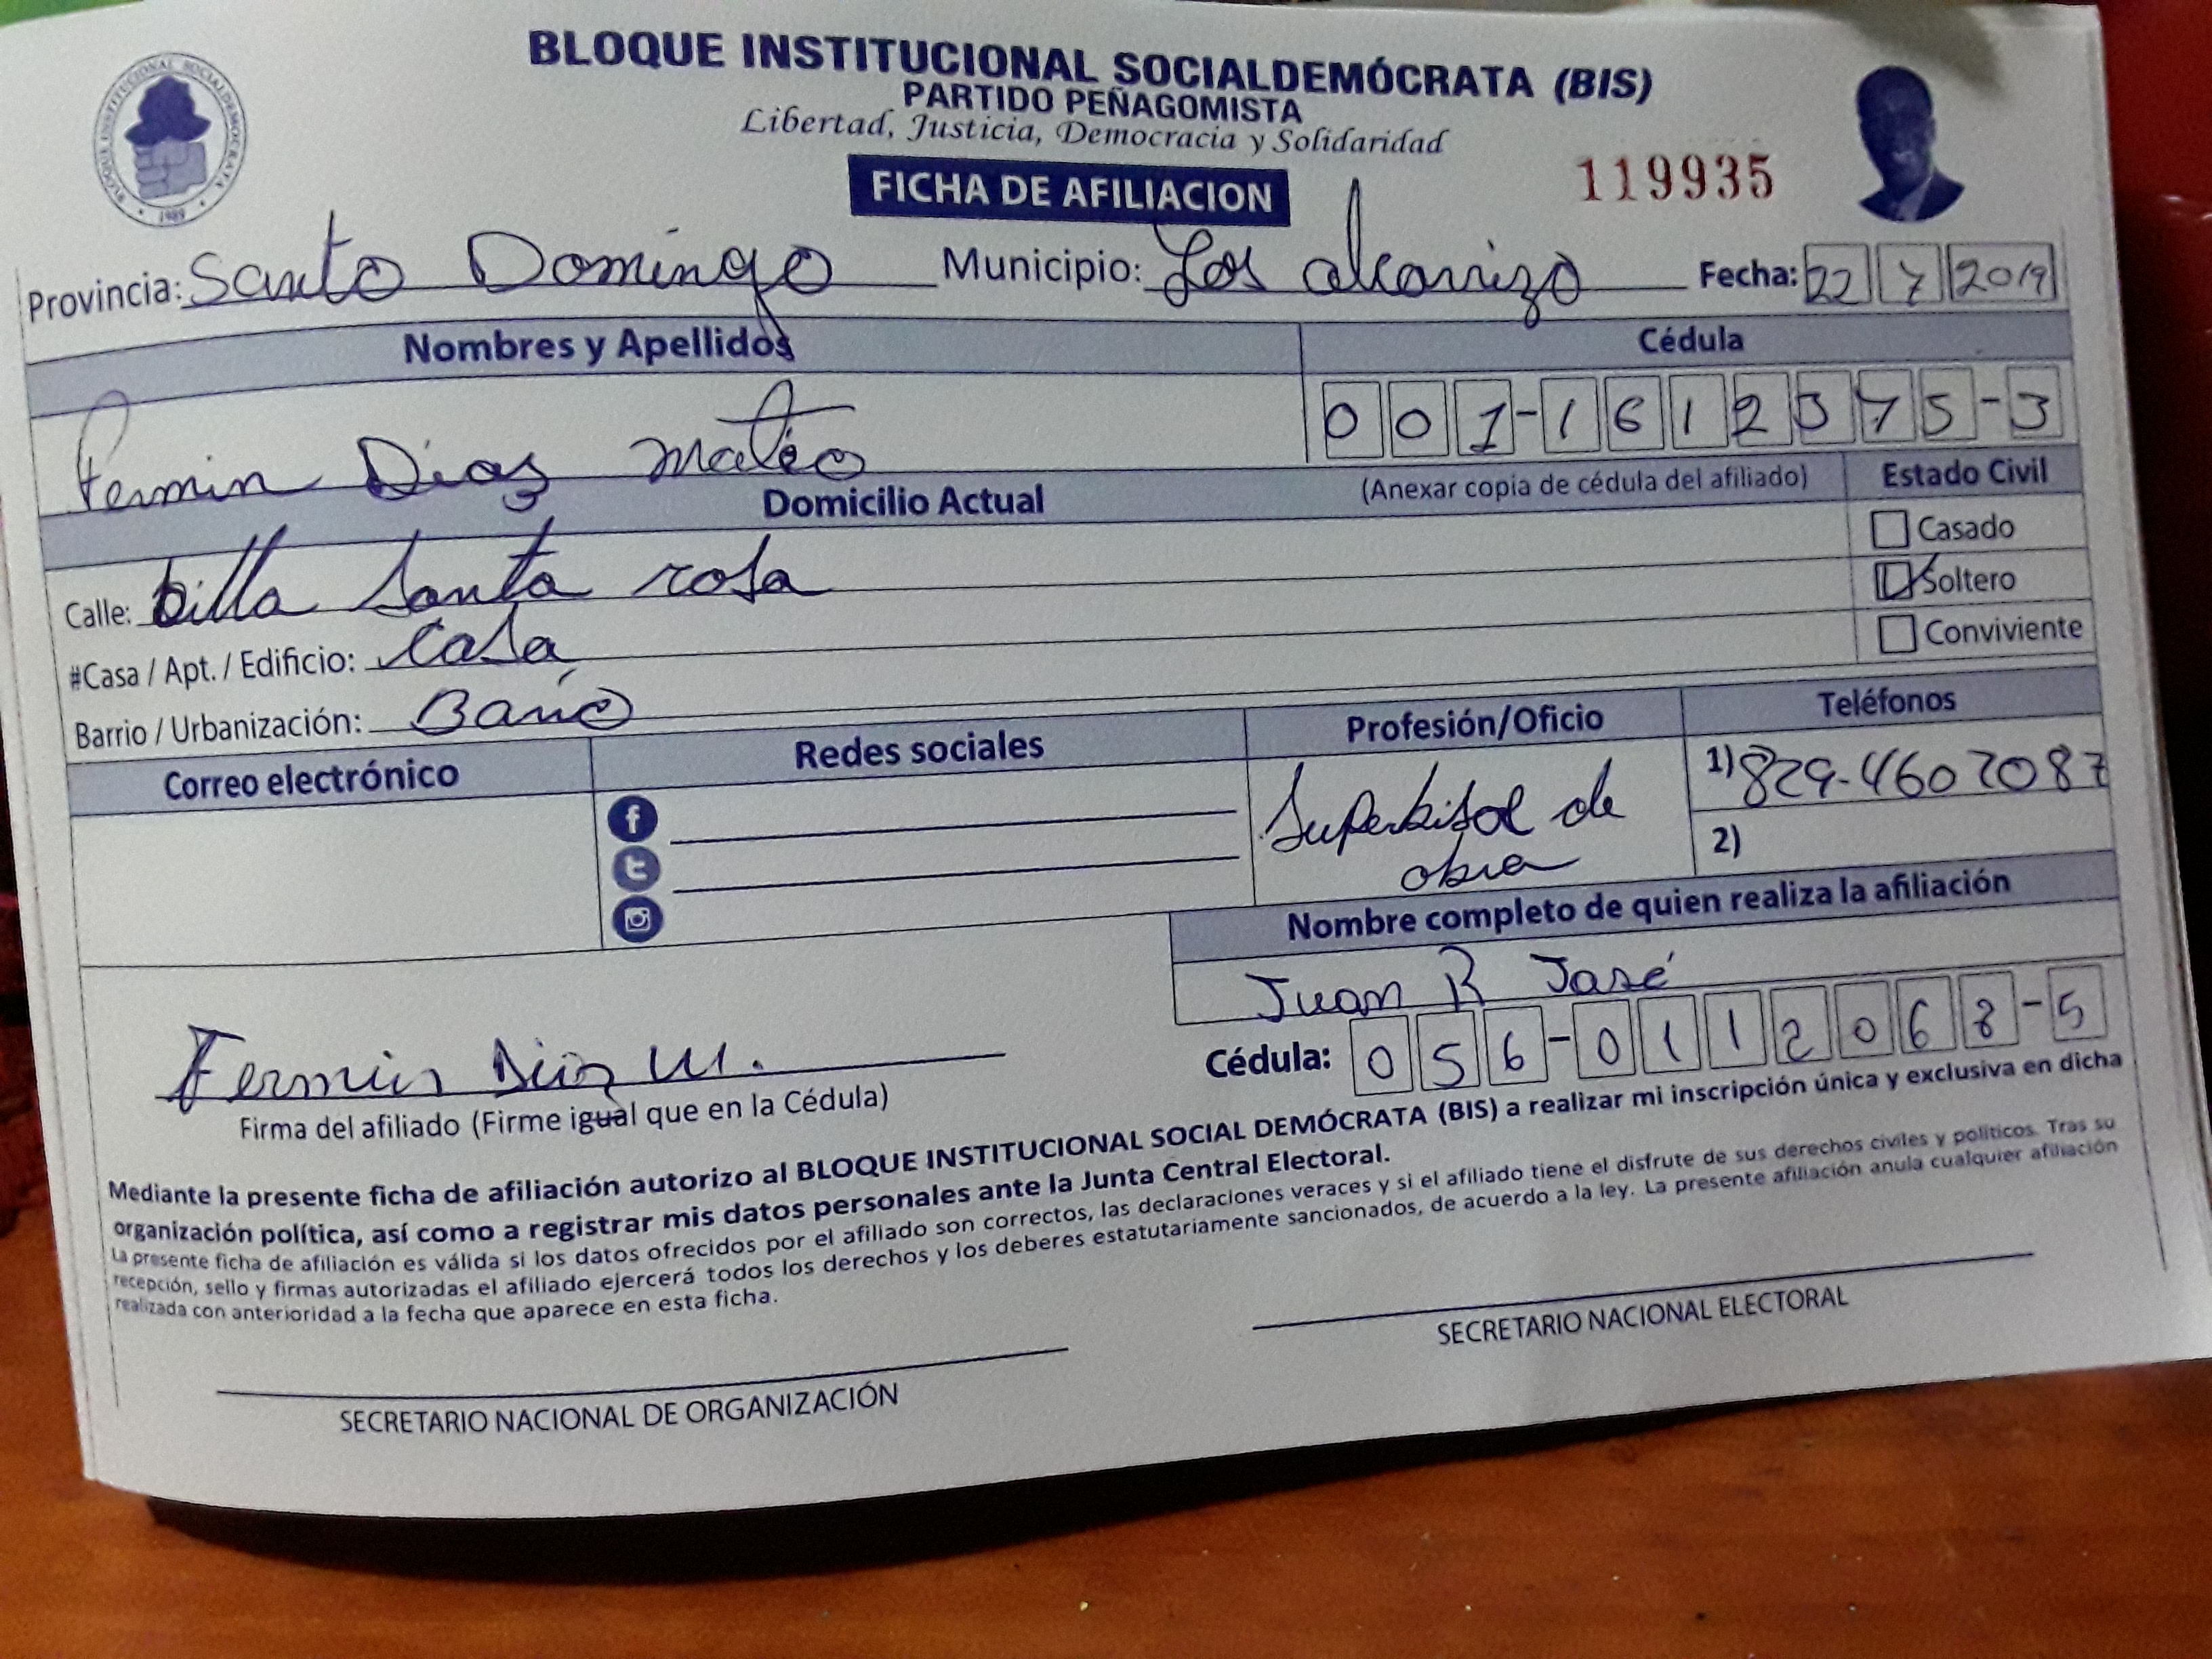 BLOQUE INSTITUCIONAL SOCIALDEMÓCRATA (BIS)
PARTIDO PEÑAGOMISTA
Libertad, Justicia, Democracia y Solidaridad
BLOQUE INSTITUCIONAL SOCIALDEMOCRATA
1989
FICHA DE AFILIACION
119935
Provincia: Santo Domingo Municipio: Los alcarrizo Fecha: 22 7 2019
Nombres y Apellidos Cédula
Fermin Diaz mateo 001-1612375-3
Domicilio Actual (Anexar copia de cédula del afiliado) Estado Civil
Casado
Calle: billa Santa rosa Soltero
#Casa / Apt. / Edificio: Casa Conviviente
Barrio / Urbanización:
Correo electrónico Redes sociales Profesión/Oficio Teléfonos
Superbisol de obra
1) 829-460 7087
2)
Nombre completo de quien realiza la afiliación
Juan R José
Cédula: 056-0112068-5
Fermin Diaz M.
Firma del afiliado (Firme igual que en la Cédula)
Mediante la presente ficha de afiliación autorizo al BLOQUE INSTITUCIONAL SOCIAL DEMÓCRATA (BIS) a realizar mi inscripción única y exclusiva en dicha
organización política, así como a registrar mis datos personales ante la Junta Central Electoral.
La presente ficha de afiliación es válida si los datos ofrecidos por el afiliado son correctos, las declaraciones veraces y si el afiliado tiene el disfrute de sus derechos civiles y políticos. Tras su
recepción, sello y firmas autorizadas el afiliado ejercerá todos los derechos y los deberes estatutariamente sancionados, de acuerdo a la ley. La presente afiliación anula cualquier afiliación
realizada con anterioridad a la fecha que aparece en esta ficha.
SECRETARIO NACIONAL DE ORGANIZACIÓN
SECRETARIO NACIONAL ELECTORAL